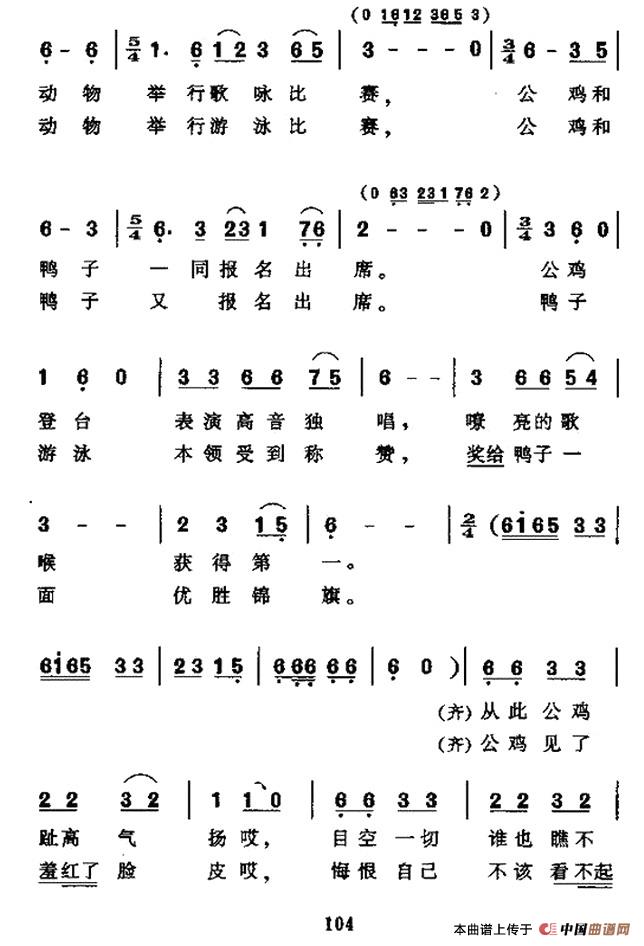 (0 1612 3653)
6 - 6 | 5/4 1. 6 12 3 65 | 3 - - - 0 | 3/4 6 - 35 |
动物 举行歌咏比 赛, 公鸡和
动物 举行游泳比 赛, 公鸡和
(0 63 231 762)
6 - 3 | 5/4 6. 3 231 76 | 2 - - - 0 | 3/4 3 6 0 |
鸭子 一同报名出 席。 公鸡
鸭子 又 报名出 席。 鸭子
1 6 0 | 33 66 75 | 6 - - | 3 66 54 |
登台 表演高音独 唱, 嘹亮的歌
游泳 本领受到称 赞, 奖给鸭子一
3 - - | 2 3 15 | 6 - - | 2/4 (6165 33 |
喉 获得第 一。
面 优胜锦 旗。
6165 33 | 2315 | 666 66 | 6 0 ) | 66 33 |
(齐)从此公鸡
(齐)公鸡见了
22 32 | 1 10 | 66 33 | 22 32 |
趾高气 扬哎, 目空一切 谁也瞧不
羞红了脸 皮哎, 悔恨自己 不该看不起
104
本曲谱上传于 中国曲谱网